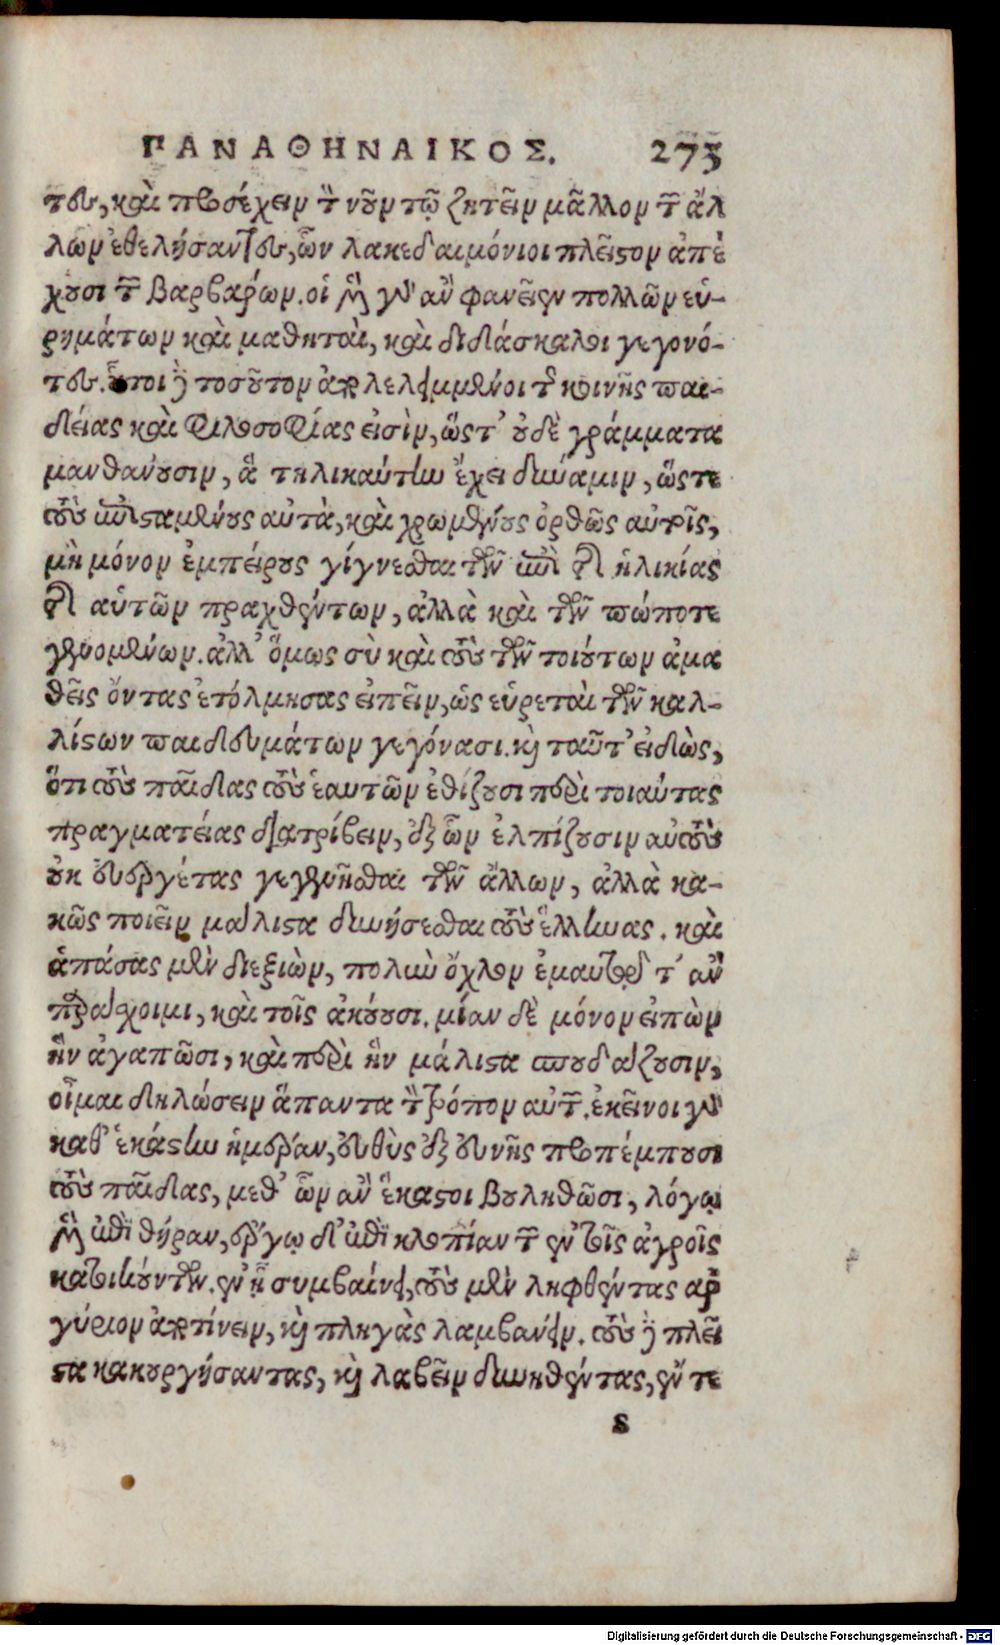 ΠΑΝΑΘΗΝΑΙΚΟΣ. 273
τες, καὶ προσέχειν τὸν νοῦν τῷ ζητεῖν μᾶλλον τῶν ἄλ
λων ἐθελήσαντες, ὧν λακεδαιμόνιοι πλεῖστον ἀπέ
χουσι τῶν βαρβάρων. οἱ μὲν γὰρ ἂν φανεῖεν πολλῶν εὑ-
ρημάτων καὶ μαθηταὶ, καὶ διδάσκαλοι γεγονό-
τες. οὗτοι δὲ τοσοῦτον ἀπολελειμμένοι τῆς κοινῆς παι-
δείας καὶ φιλοσοφίας εἰσὶν, ὥστ' οὐδὲ γράμματα
μανθάνουσιν, ἃ τηλικαύτην ἔχει δύναμιν, ὥστε
τοὺς ἐπισταμένους αὐτὰ, καὶ χρωμένους ὀρθῶς αὐτοῖς,
μὴ μόνον ἐμπείρους γίγνεσθαι τῶν ἐπὶ τῆς ἡλικίας
τῆς αὑτῶν πραχθέντων, ἀλλὰ καὶ τῶν πώποτε
γενομένων. ἀλλ' ὅμως σὺ καὶ τοὺς τῶν τοιούτων ἀμα
θεῖς ὄντας ἐτόλμησας εἰπεῖν, ὡς εὑρεταὶ τῶν καλ-
λίστων παιδευμάτων γεγόνασι. καὶ ταῦτ' εἰδὼς,
ὅτι τοὺς παῖδας τοὺς ἑαυτῶν ἐθίζουσι περὶ τοιαύτας
πραγματείας διατρίβειν, ἐξ ὧν ἐλπίζουσιν αὐτοὺς
οὐκ εὐεργέτας γεγενῆσθαι τῶν ἄλλων, ἀλλὰ κα-
κῶς ποιεῖν μάλιστα δυνήσεσθαι τοὺς ἕλληνας. καὶ
ἁπάσας μὲν διεξιὼν, πολὺν ὄχλον ἐμαυτῷ τ' ἂν
παράσχοιμι, καὶ τοῖς ἀκούουσι. μίαν δὲ μόνον εἰπὼν
ἣν ἀγαπῶσι, καὶ περὶ ἣν μάλιστα σπουδάζουσιν,
οἶμαι δηλώσειν ἅπαντα τὸν τρόπον αὐτῶν. ἐκεῖνοι γὰρ
καθ' ἑκάστην ἡμέραν, εὐθὺς ἐξ εὐνῆς προπέμπουσι
τοὺς παῖδας, μεθ' ὧν ἂν ἕκαστοι βουληθῶσι, λόγῳ
μὲν ἐπὶ θήραν, ἔργῳ δ' ἐπὶ κλοπίαν τῶν ἐν τοῖς ἀγροῖς
κατοικούντων. ἐν ᾗ συμβαίνει, τοὺς μὲν ληφθέντας ἀρ
γύριον ἀποτίνειν, καὶ πληγὰς λαμβάνειν. τοὺς δὲ πλεῖ
στα κακουργήσαντας, καὶ λαβεῖν δυνηθέντας, ἔν τε
s
Digitalisierung gefördert durch die Deutsche Forschungsgemeinschaft - DFG